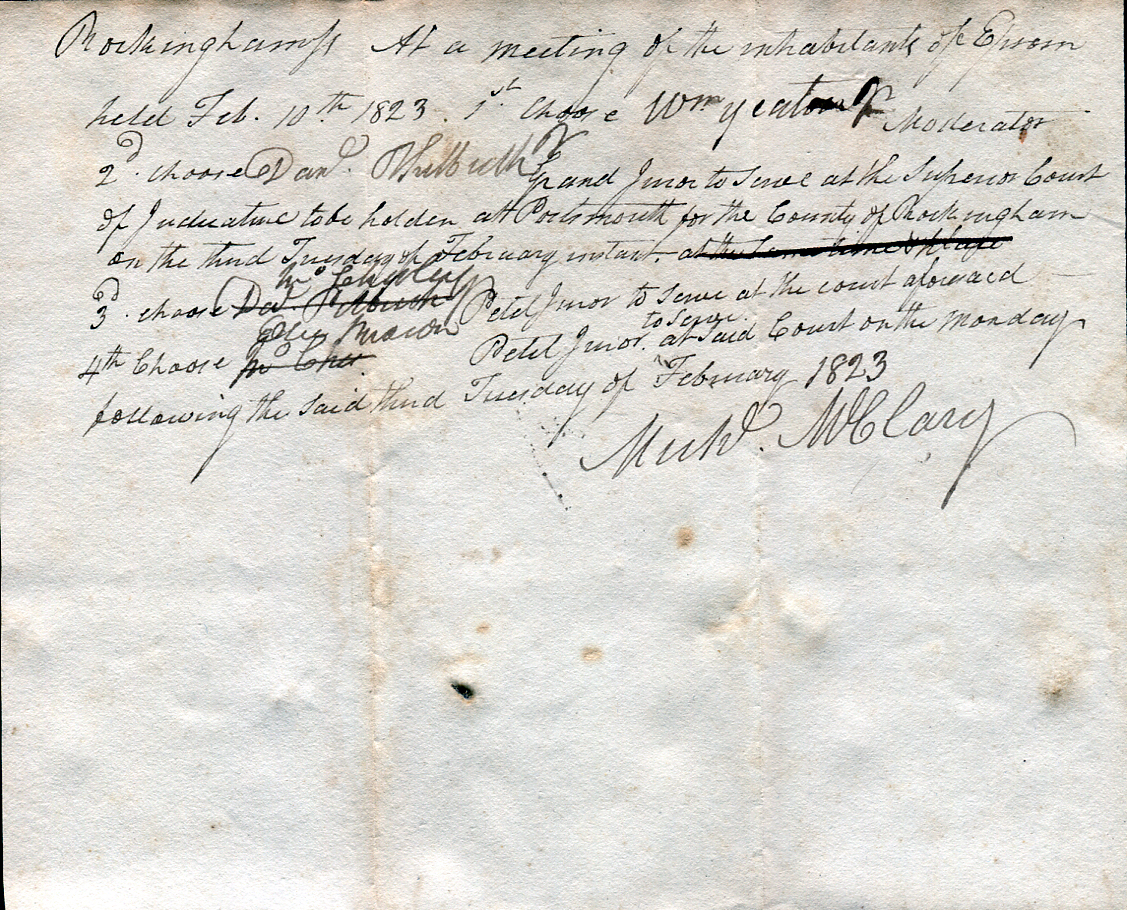 Rockingham ss At a meeting of the inhabitants of Epsom
held Feb. 10th 1823. 1st choose Wm yeaton Jr Moderator
2d. choose Danl. Philbrick Jr Grand Juror to serve at the Superior Court
of Judicature to be holden at Portsmouth for the County of Rockingham
on the third Tuesday of February instant at the same time & place
Mc
3d. choose Petit Juror to serve at the court aforesaid
to serve
4th Choose Petit Juror. at said Court on the monday
following the said third Tuesday of February 1823
Michl. McClary